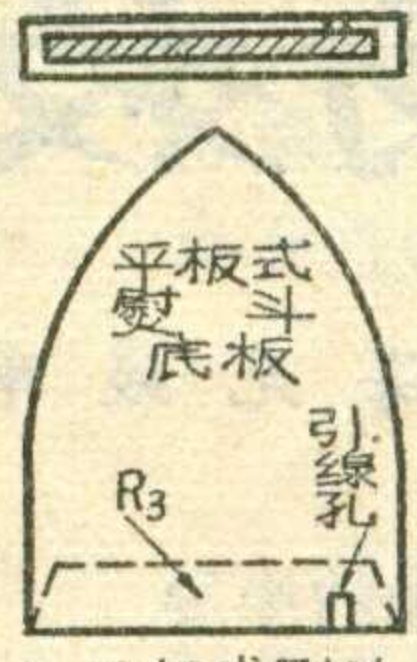 平板式
熨斗
底板
引线孔
R3